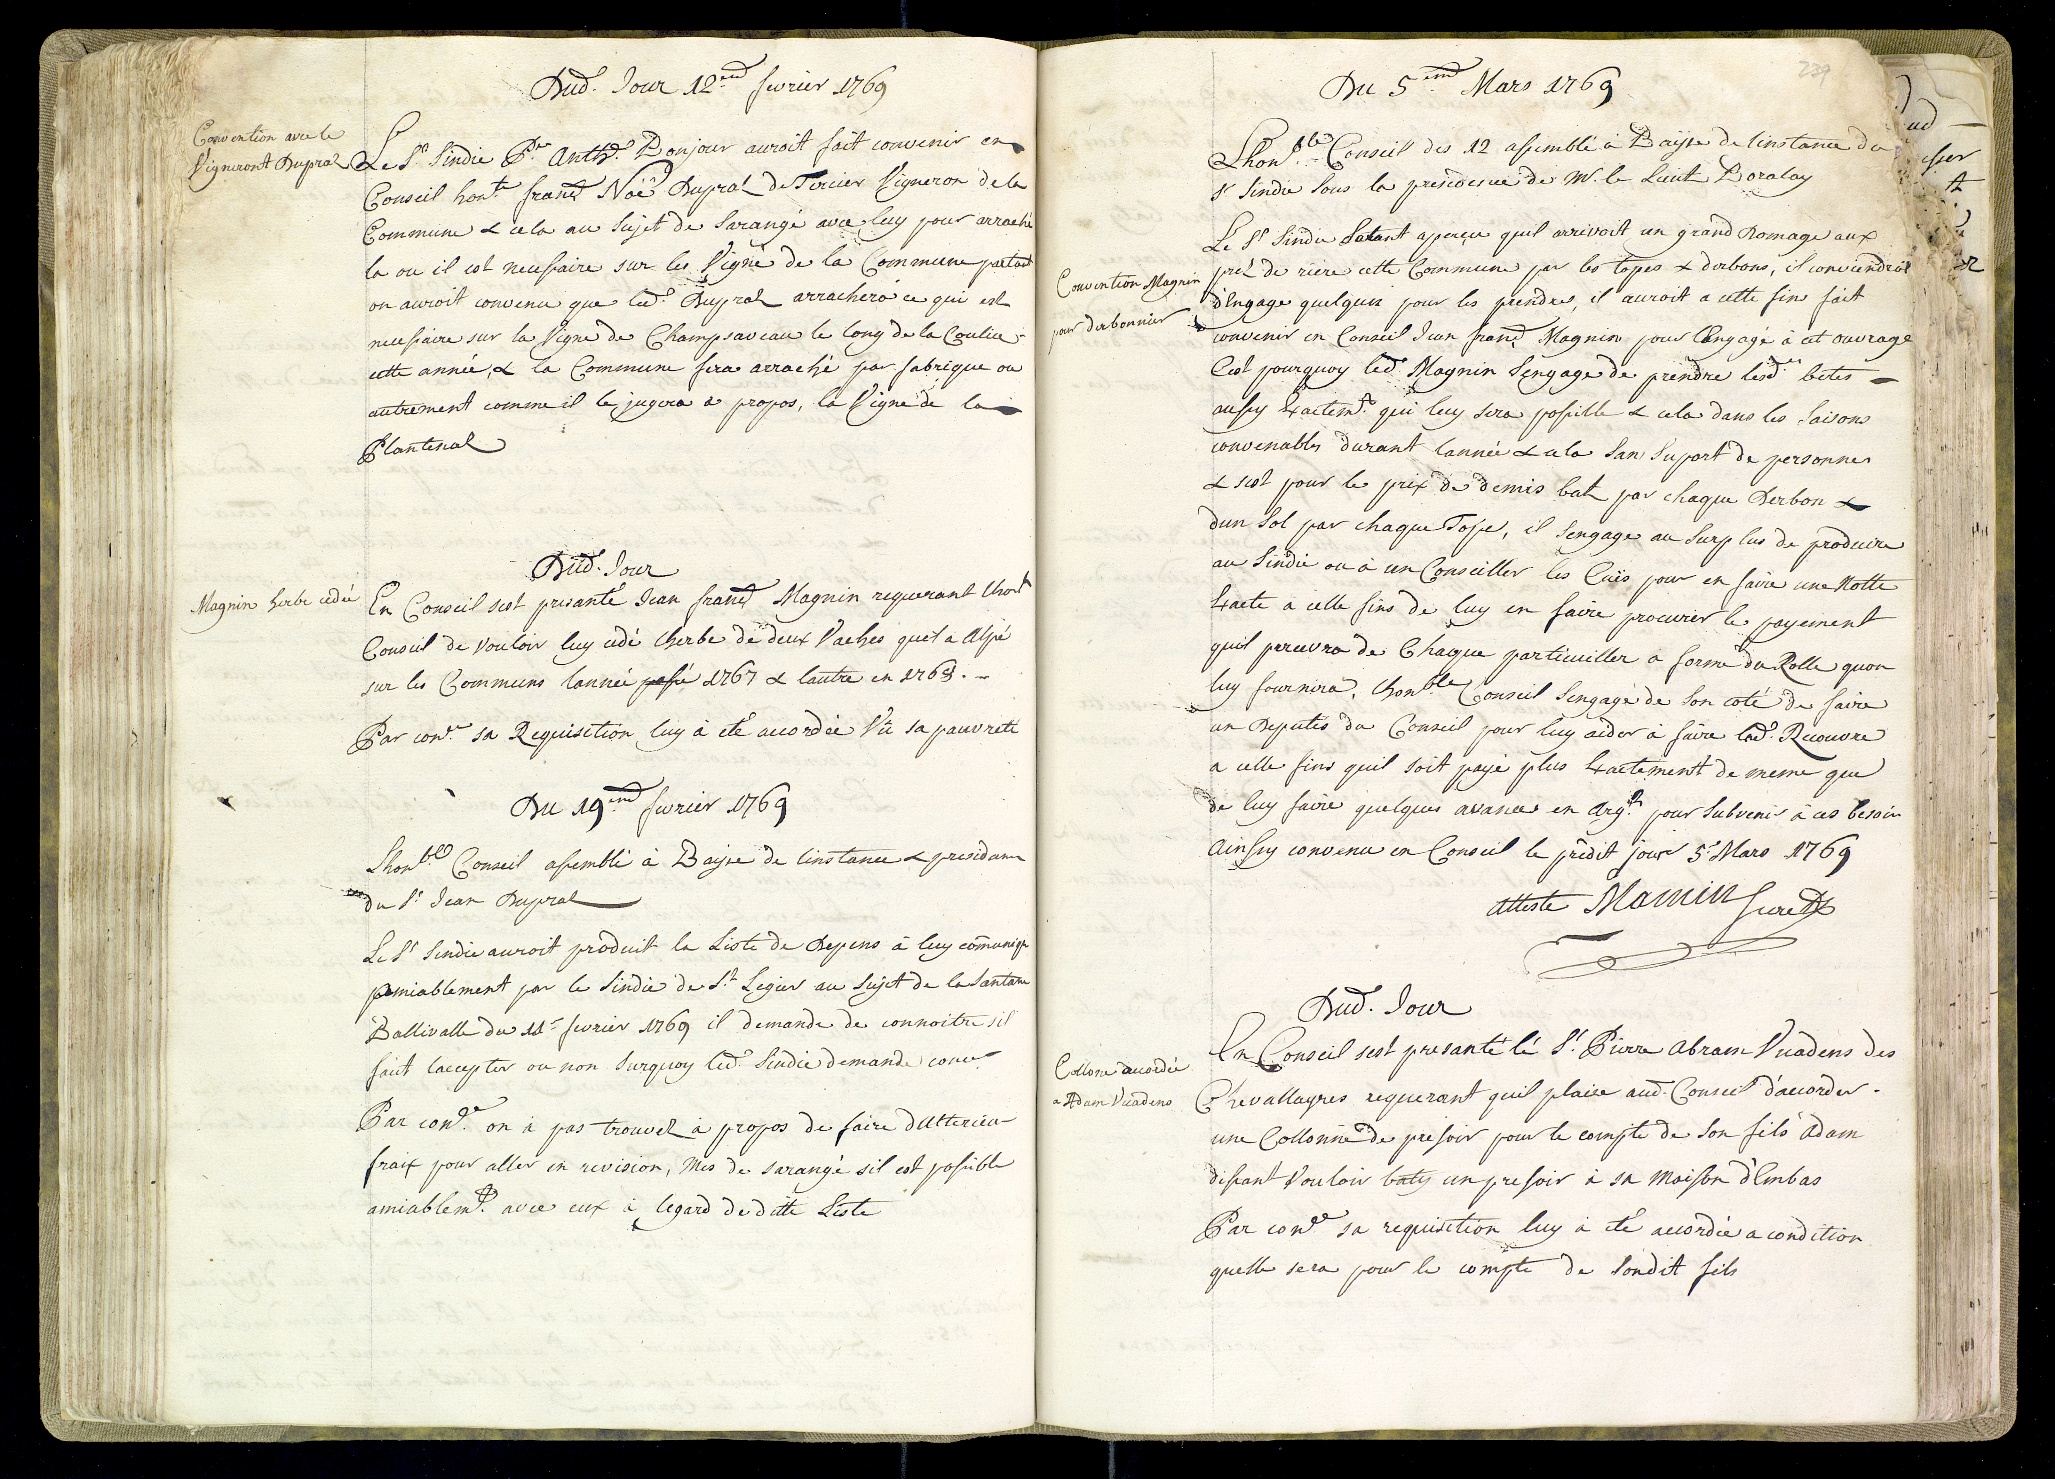 Dud. Jour 12.eme fevrier 1769
Convention avec le
Vigneront Dupraz
Le Sr. Sindic P.re Anth.e Bonjour auroit fait convenir en
Conseil hon.te franç Noé Dupraz De Tercier Vigneron de la
Commune & cela au Sujet de Sarangé avec luy pour arraché
la ou il est necessaire sur les Vigne de la Commune partant
on auroit convenu que led. Dupraz arrachera ce qui est
necessaire sur la Vigne de Champsaveau le long de la Coulice
cette année, & la Commune fera arraché par fabrique ou
autrement comme il le jugera a propos, la Vigne de la
Plantenaz
Dud. Jour
Magnin herbe cedée
En Conseil sest presanté Jean franç Magnin requerant lhon.
Conseil de Vouloir luy cedé lherbe de deux Vaches quel a Alpé
sur les Communs lannée passé 1767 & lautre en 1768. -
Par con.re sa Requisition luy à eté accordée Vû sa pauvreté
Du 19.eme fevrier 1769
Lhon.ble Conseil assemblé à Baize de linstance & presidance
du Sr. Jean Dupraz
Le Sr. Sindic auroit produit la Liste de Depens à luy comuniqu
amiablement par le Sindic de St. Legier au Sujet de la Santance
Ballivalle du 11e fevrier 1769 il demande de connoitre sil
faut laccepter ou non Surquoy led. Sindic demande conn.
Par con.re on à pas trouvez à propos de faire dulterieu-
fraix pour aller en revision, Mes de sarangé sil est possible
amiablem.t avec eux à legard de dite Liste
239
Du 5.eme Mars 1769
Lhon.ble Conseil des 12 assemblé à Baize de linstance du
Sr Sindic Sous la presidence de Mr. le Lieut Doralay
Convention Magnin
pour derbonnier
Le Sr Sindic Satant aperçu quil arrivoit un grand Domage aux
prez de riere cette Commune par les topes & derbons, il conviendroit
d'Engage quelqun pour les prendres, il auroit a cette fins fait
convenir en Conseil Jean franç Magnin pour Lengagé à cet ouvrage
Cest pourquoy led. Magnin Sengage de prendre lesd.es betes
aussy Exactem.t qui luy sera possible & cela dans les Saisons
convenables durant lannée & cela San Suport de personnes
& sest pour le prix de demis batz par chaque Derbon &
dun Sol par chaque Tope, il Sengage au Surplus de produire
au Sindic ou à un Conseiller les Cuës pour en faire une Notte
Exacte à celle fins de luy en faire procurer le payement
quil percevra de Chaque particuiller a forme du Rolle quon
luy fournira, Lhon.ble Conseil Sengage de Son coté de faire
un Deputés du Conseil pour luy aider à faire lad. Recouvre
a celle fins quil soit payé plus Exactement de meme que
de luy faire quelques avances en Arg.t pour Subvenir à ces besoin
Ainssy convenu en Conseil le predit jour 5e Mars 1769
Atteste Mamin Secret
Dud. Jour
Collone accordée
a Adam Vuadens
En Conseil sest presanté le Sr. Pierre Abram Vuadens des
Chevallayres requerant quil plaise aud. Conseil d'accorder
une Collonne de presoir pour le compte de Son fils Adam
disant Vouloir baty un pressoir à sa Maison d'Embas
Par con.re sa requisition luy à eté accordée a condition
quelle sera pour le compte de Sondit fils